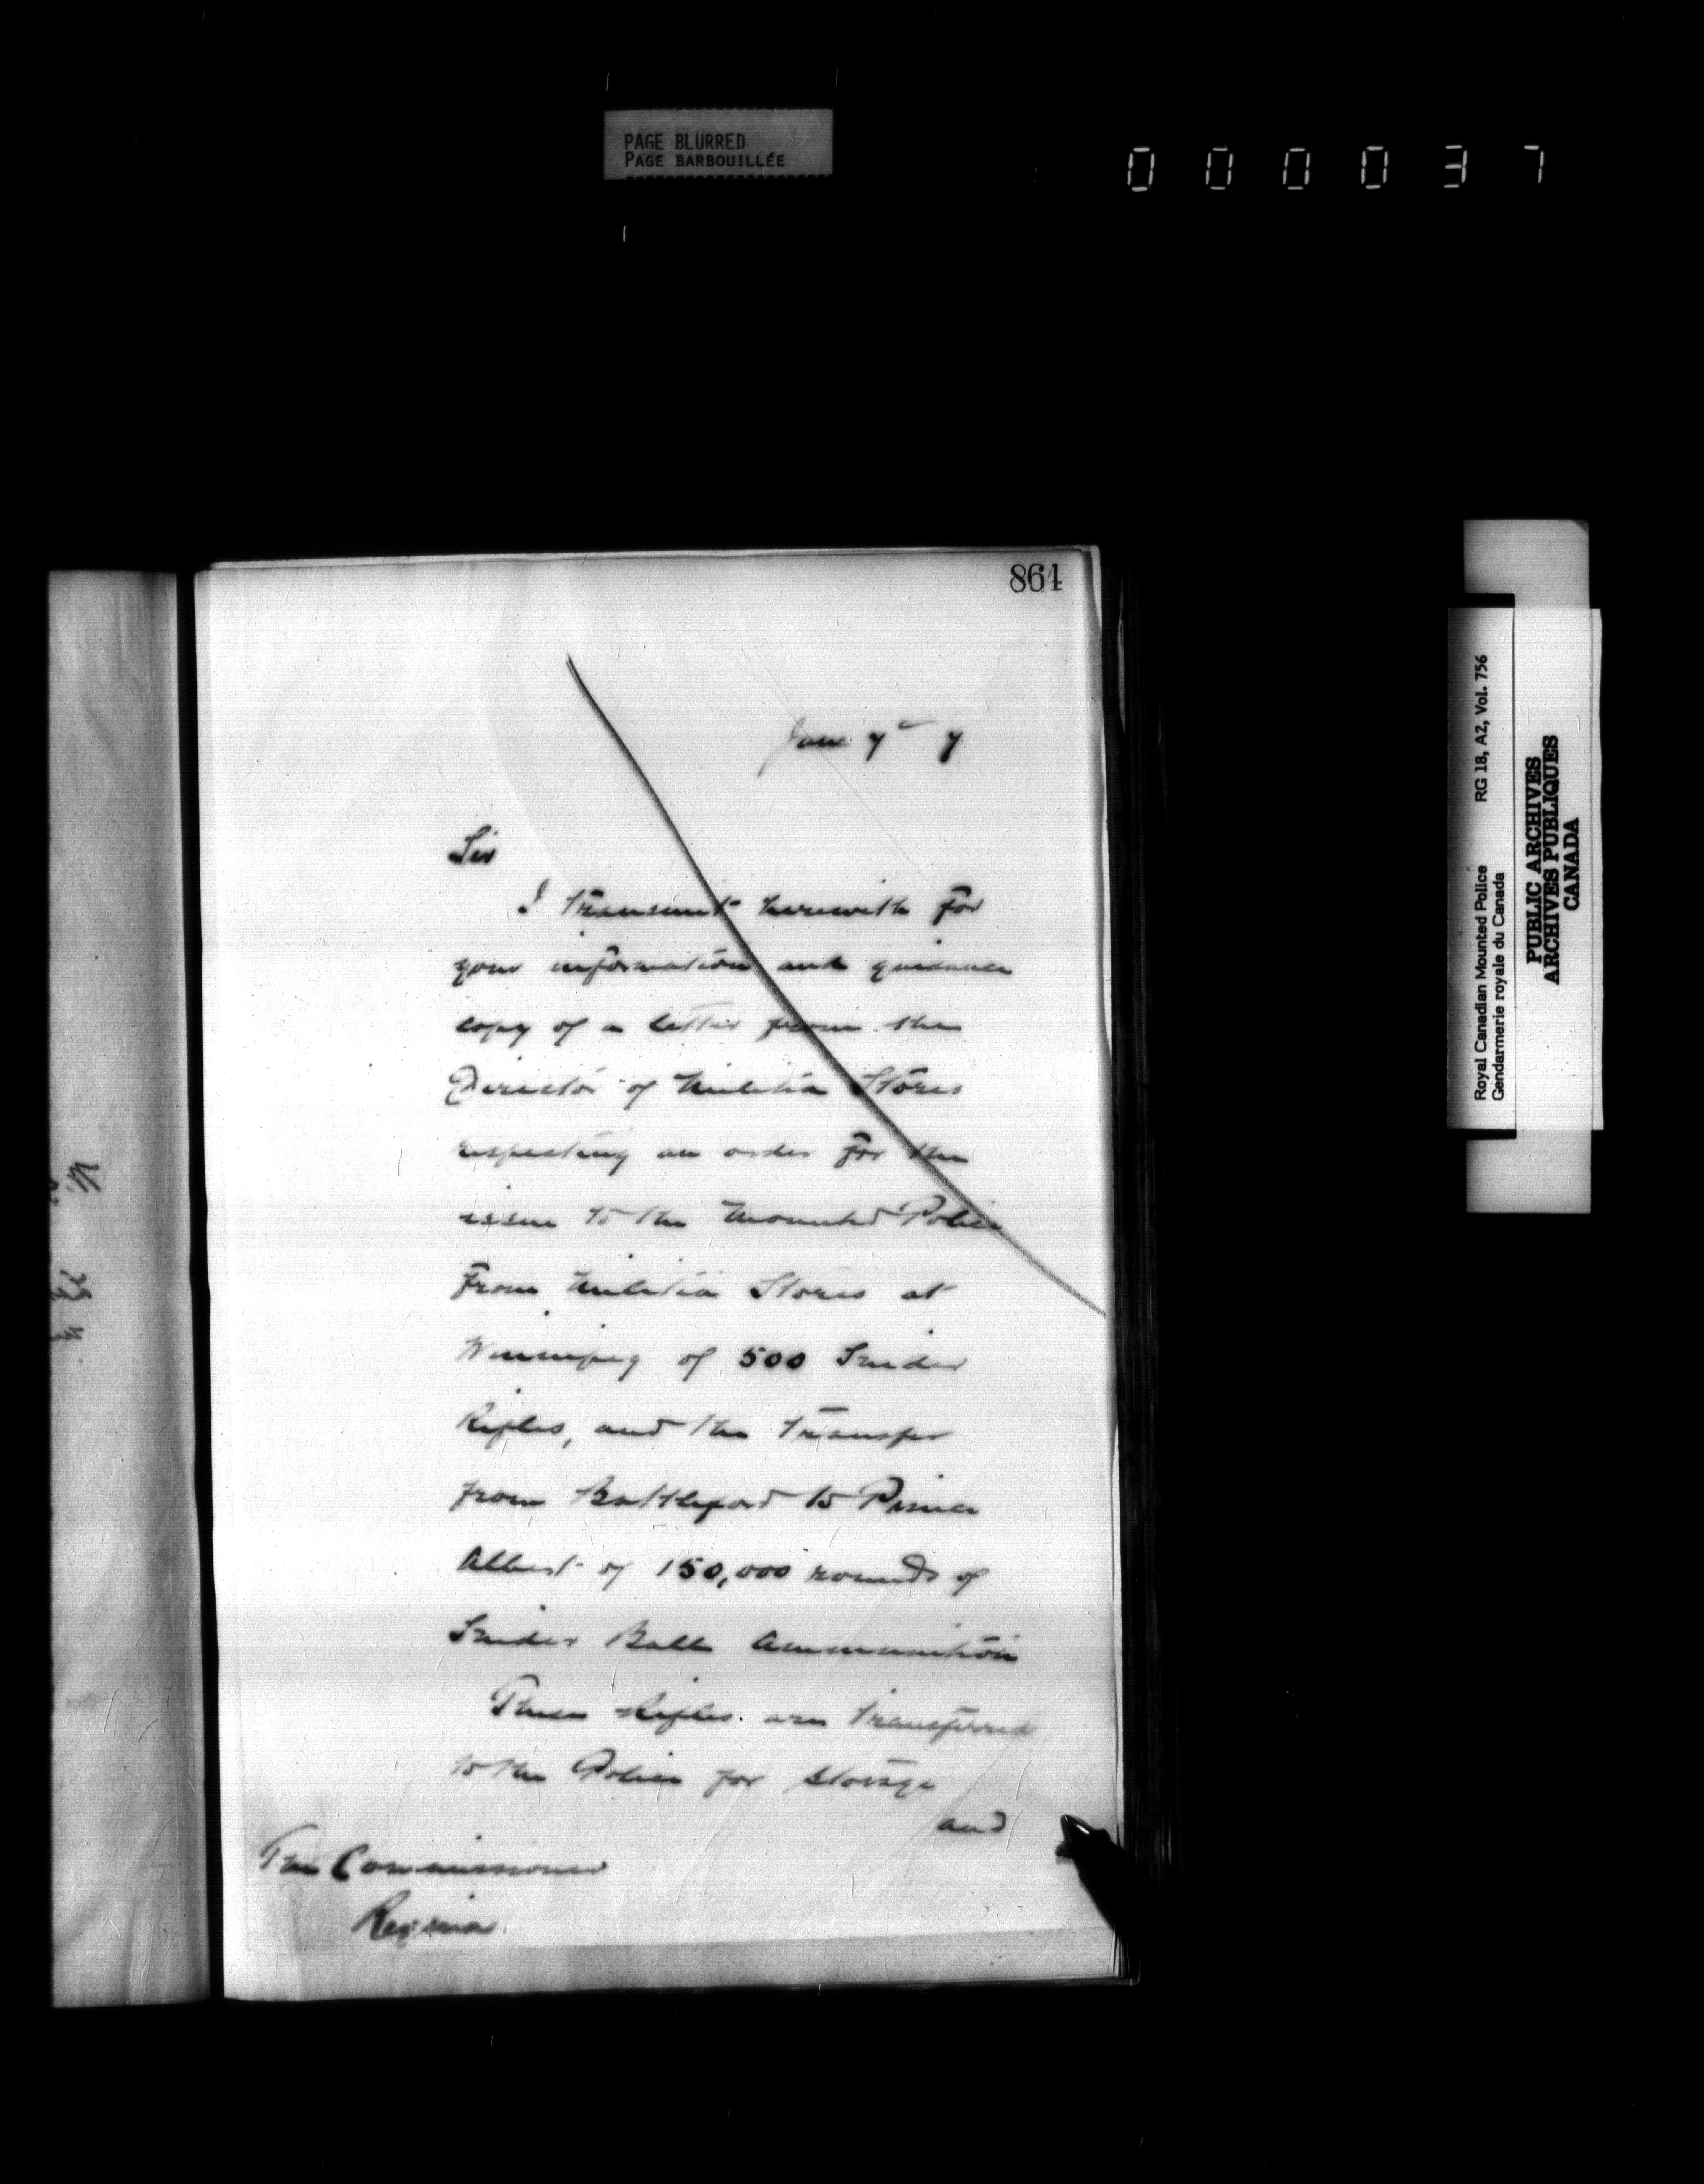 PAGE BLURRED
PAGE BARBOUILLÉE
000037
864
June 7th 7
Sir
I transmit herewith for
your information and guidance
copy of a letter from the
Director of Militia Stores
respecting an order for the
issue to the Mounted Police
from Militia Stores at
Winnipeg of 500 Snider
Rifles, and the transfer
from Battleford to Prince
Albert of 150,000 rounds of
Snider Ball Ammunition
These Rifles are transferred
to the Police for storage
and
The Commissioner
Regina
Royal Canadian Mounted Police RG 18, A2, Vol. 756
Gendarmerie royale du Canada
PUBLIC ARCHIVES
ARCHIVES PUBLIQUES
CANADA